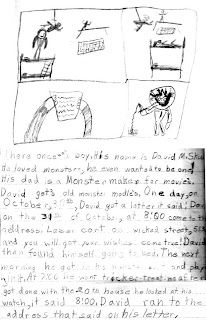 There once was a boy. His name is David M. Shaw
He loved monsters, he even wanted to be one!
His dad is a Monster maker for movie's.
David got's old monster modle's. One day, on
October, 30th, David got a letter it said: Dav
on the 31st of October, at 8:00 come to th
address: Laser cort. on. wicked street, 513
and you will get your wishes come true! David
then found himself going to bed. The next
morning he got in his
it. At 7:00 he went
got done with the 20th house he looked at his
watch, it said 8:00, David ran to the
address that said on his letter.